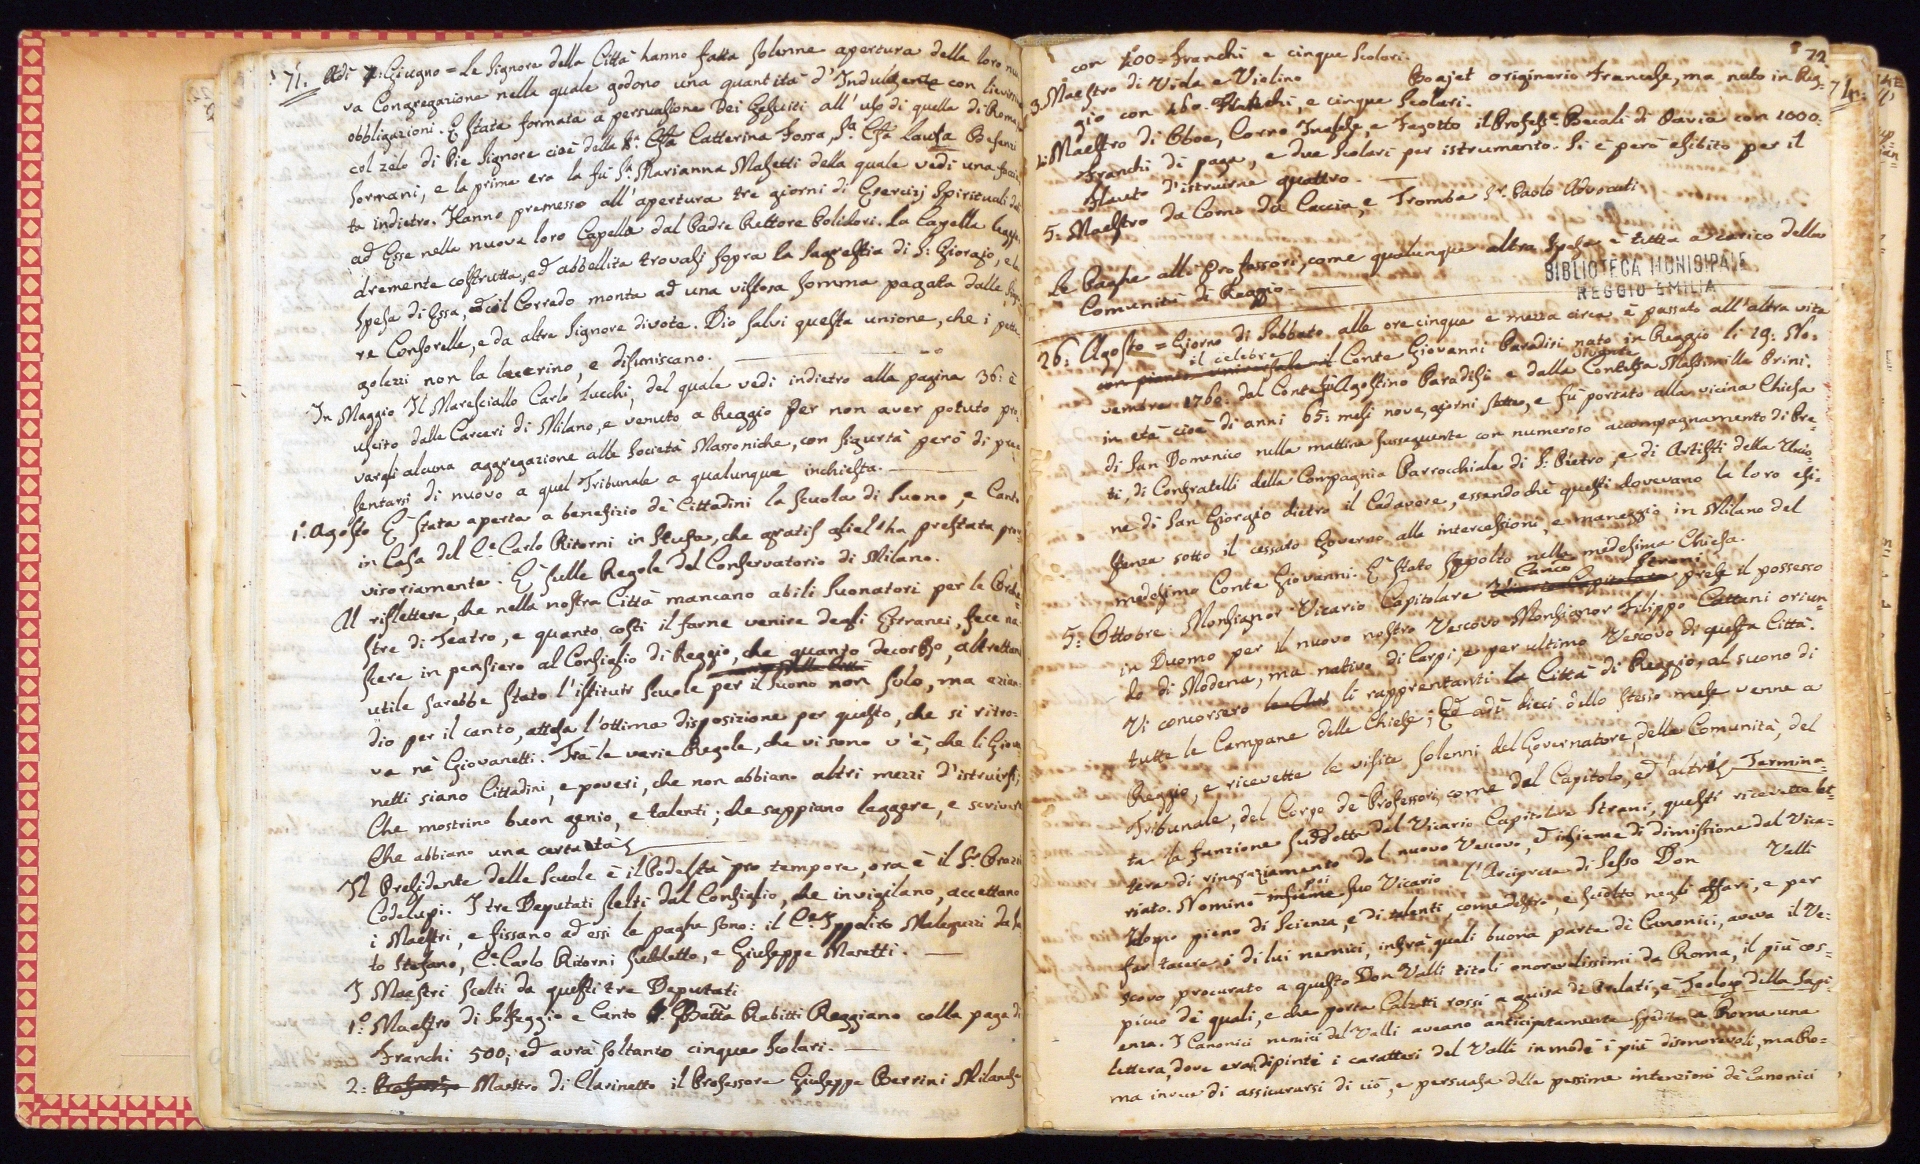 71. Adì 7. Giugno = Le Signore della Città hanno fatta solenne apertura della loro nuo
va Congregazione nella quale godono una quantità d'Indulgenze con lievissime
obbligazioni. È stata formata a persuasione dei Gesuiti all'uso di quella di Roma,
col zelo di Pie Signore cioè della Sa. Cssa Catterina Fossa, Sa. Cssa Laura
Sormani, e la prima era la fu Sa. Marianna Masetti della quale vedi una facciat
ta indietro. Hanno premesso all'apertura tre giorni di Esercizj Spirituali dati
ad Esse nella nuova loro Capella dal Padre Rettore Polidori. La Capella leggia-
dremente costrutta, ed abbellita trovasi sopra la Sagrestia di S: Giorgio, e la
spesa di Essa, ed il Corredo monta ad una vistosa somma pagata dalle
re Consorelle, e da altre Signore divote. Dio salvi questa unione, che i pette
golezzi non la lacerino, e disuniscano.
In Maggio Il Maresciallo Carlo Zucchi, del quale vedi indietro alla pagina 36: è
uscito dalle Carceri di Milano, e venuto a Reggio per non aver potuto pro-
vargli alcuna aggregazione alle Società Massoniche, con sigurtà però di pre
sentarsi di nuovo a quel Tribunale a qualunque inchiesta.
1.° Agosto È stata aperta a benefizio de Cittadini la Scuola di Suono, e Canto
in Casa del Ce Carlo Ritorni in Stufa, che gratis gliel'ha prestata prov-
visoriamente. È sulle Regole del Conservatorio di Milano.
Al riflettere, che nella nostra Città mancano abili Suonatori per le Orche-
stre di Teatro, e quanto costi il farne venire degli Esteranei, fece na-
scere in pensiero al Consiglio di Reggio, che quanto decoroso, altrettanto
utile sarebbe stato l'istituir Scuole per il suono non solo, ma ezian-
dio per il canto, attesa l'ottima disposizione per questo, che si ritro-
va ne' Giovanetti. Trà le varie Regole, che vi sono v'è, che li Giova
netti siano Cittadini, e poveri, che non abbiano altri mezzi d'istruirsi;
Che mostrino buon genio, e talenti; che sappiano leggere, e scrivere
Che abbiano una certa età
Il Presidente delle Scuole è il Podestà pro tempore, ora è il Sr. Orazio
Codelupi. I tre Deputati scelti dal Consiglio, che invigilano, accettano
i Maestri, e fissano ad essi le paghe sono: il Ce. Ippolito Maleguzzi da San
to Stefano, Ce Carlo Ritorni suddetto, e Giuseppe Masetti.
I Maestri scelti da questi tre Deputati
1.° Maestro di Solfeggio e Canto Batta Rabitti Reggiano colla paga di
Franchi 500; ed avrà soltanto cinque Scolari.
2: Professore Maestro di Clarinetto il Professore Giuseppe Perrini Milanese
72
con 400 Franchi e cinque Scolari.
3. Maestro di Viola e Violino Boajet originario Francese, ma nato in Reg- 71.
gio con 460. Franchi, e cinque Scolari.
4: Maestro di Oboe, Corno Inglese, e Fagotto il Profesre. Becali di Pavia con 1000.
Franchi di paga, e due Scolari per istrumento. Si è però esibito per il
Flauto d'istruirne quattro.
5: Maestro da Corno da Caccia, e Tromba Sr. Paolo Advocati
Le Paghe alli Professori, come qualunque altra spesa è tutta a carico della
Comunità di Reggio.
BIBLIOTECA MUNICIPALE
REGGIO EMILIA
26: Agosto = Giorno di Sabbato alle ore cinque e mezza circa è passato all'altra vita
il celebre
con pianto universale il Conte Giovanni Paradisi nato in Reggio li 19: No-
vivente
vembre 1760. dal Conte fù Agostino Paradisi e dalla Contessa Massimilla Prini.
in età cioè di anni 65: mesi nove, giorni sette, e fù portato alla vicina Chiesa
di San Domenico nella mattina susseguente con numeroso accompagnamento di Pre-
ti, di Confratelli della Compagnia Parrocchiale di S: Pietro, e di Artisti della Unio-
ne di San Giorgio dietro il Cadavere, essendochè questi dovevano la loro esi-
stenza sotto il cessato Governo alle intercessioni, e maneggio in Milano del
medesimo Conte Giovanni. È stato sepolto nella medesima Chiesa.
Canco Strani
5: Ottobre: Monsignor Vicario Capitolare Vicario Capitolare prese il possesso
in Duomo per il nuovo nostro Vescovo Monsignor Filippo Cattani oriun-
do di Modena, ma nativo di Carpi, e per ultimo Vescovo di questa Città.
Vi concorsero li rapprentanti la Città di Reggio, al suono di
tutte le Campane delle Chiese; Ed adì dieci dello stesso mese venne a
Reggio, e ricevette le visite solenni del Governatore, della Comunità, del
Tribunale, del Corpo de Professori, come del Capitolo, ed altri Termina-
ta la funzione suddetta del Vicario Capitolare Strani, questi ricevette let-
tera di ringraziamento dal nuovo Vescovo, ed insieme di dimissione dal Vica-
poi
riato. Nominò insieme suo Vicario l'Arciprete di Sesso Don Valli
Uomo pieno di Scienza, e di talenti, come destro, e sciolto negli affari, e per
far tacere i di lui nemici, infrà quali buona parte di Canonici, aveva il Ve-
scovo procurato a questo Don Valli titoli onorevolissimi da Roma, il più cos-
picuo de quali, e che porta Calzetti rossi a guisa di Prelati, è Teologo della Sapi-
enza. I Canonici nemici del Valli aveano anticipatamente spedita a Roma una
lettera, dove eran dipinti i caratteri del Valli in modi i più disonorevoli, ma Ro-
ma invece di assicurarsi di ciò, e persuasa delle pessime intenzioni de Canonici